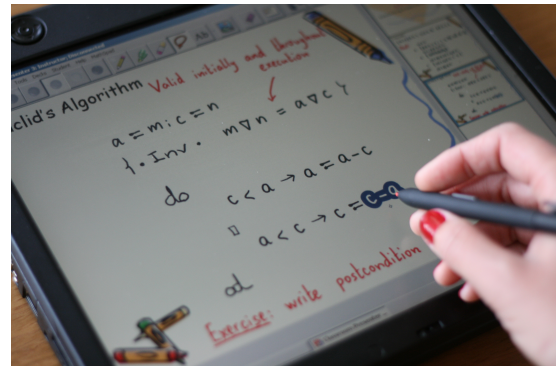 clid's Algorithm
Valid initially and throughout
execution
a = m ; c = n
{ • Inv • m ∇ n = a ∇ c }
do c < a → a = a - c
▯ a < c → c = c - a
od
Exercise: write postcondition